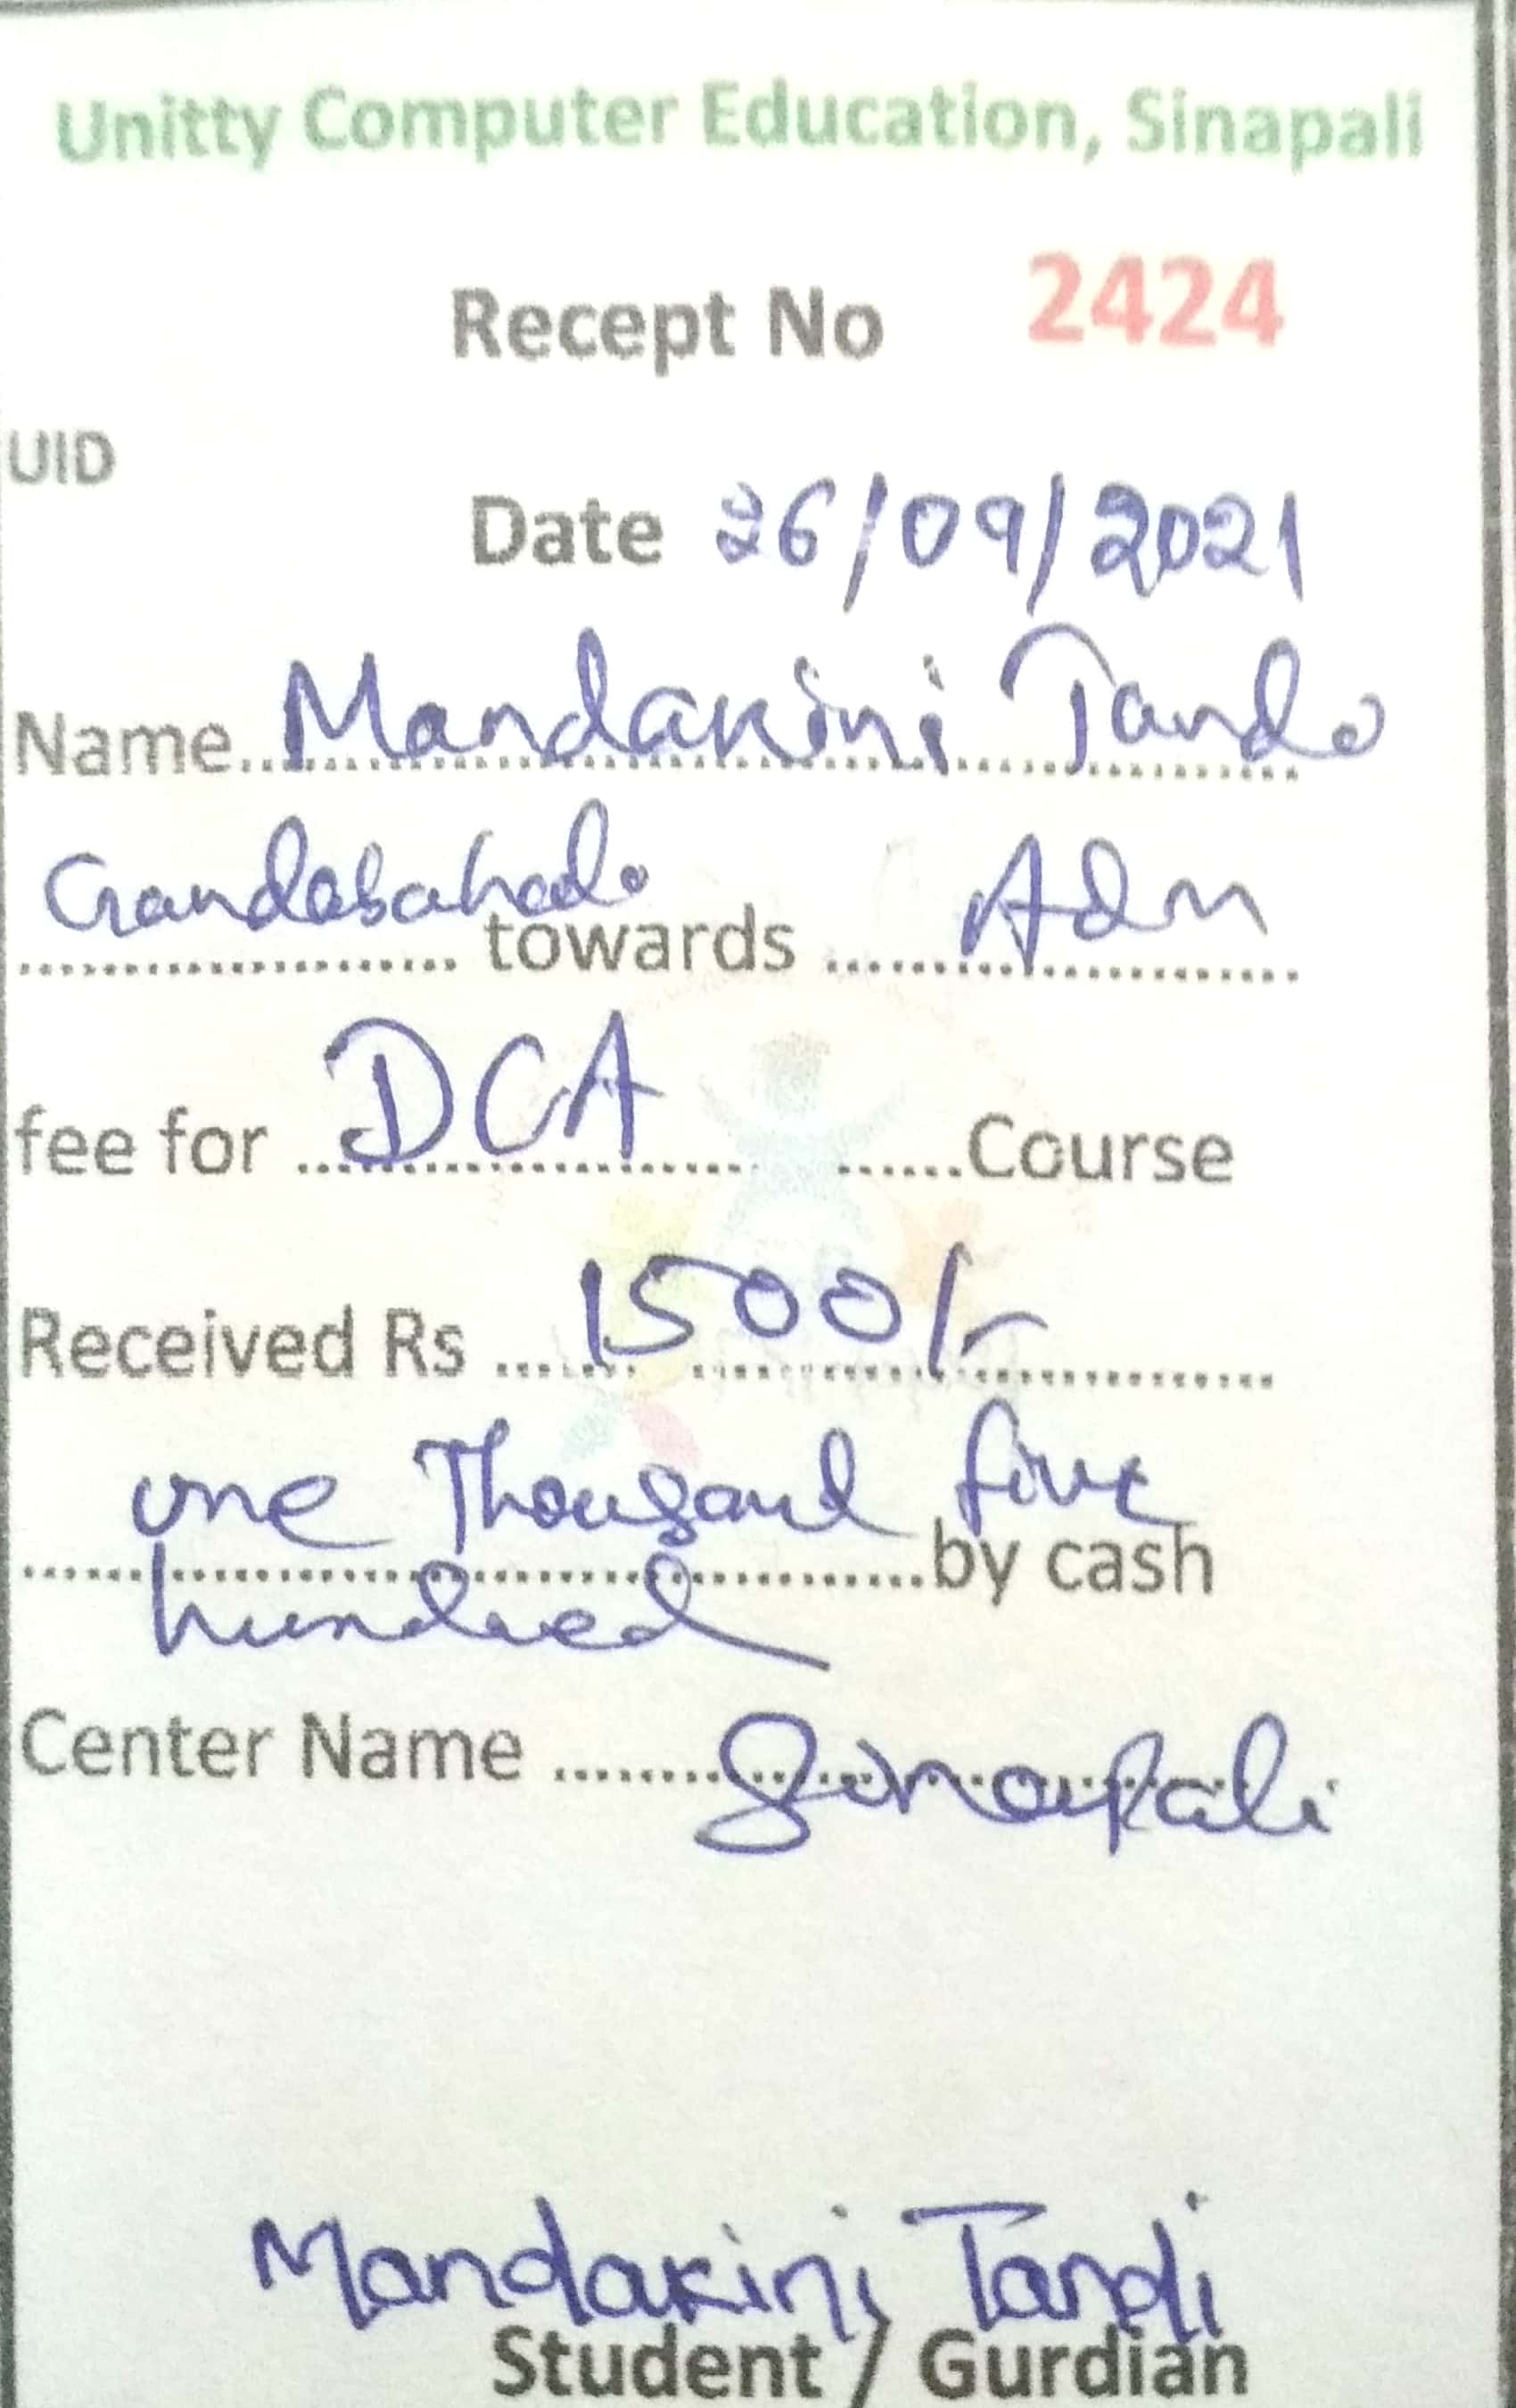 Unitty Computer Education, Sinapali
Recept No 2424
UID
Date 26/09/2021
Name Mandakini Tandi
Gandabahali towards Adm
fee for DCA Course
Received Rs 1500/-
one Thousand five
by cash
hundred
Center Name Sinapali
Mandakini Tandi
Student / Gurdian